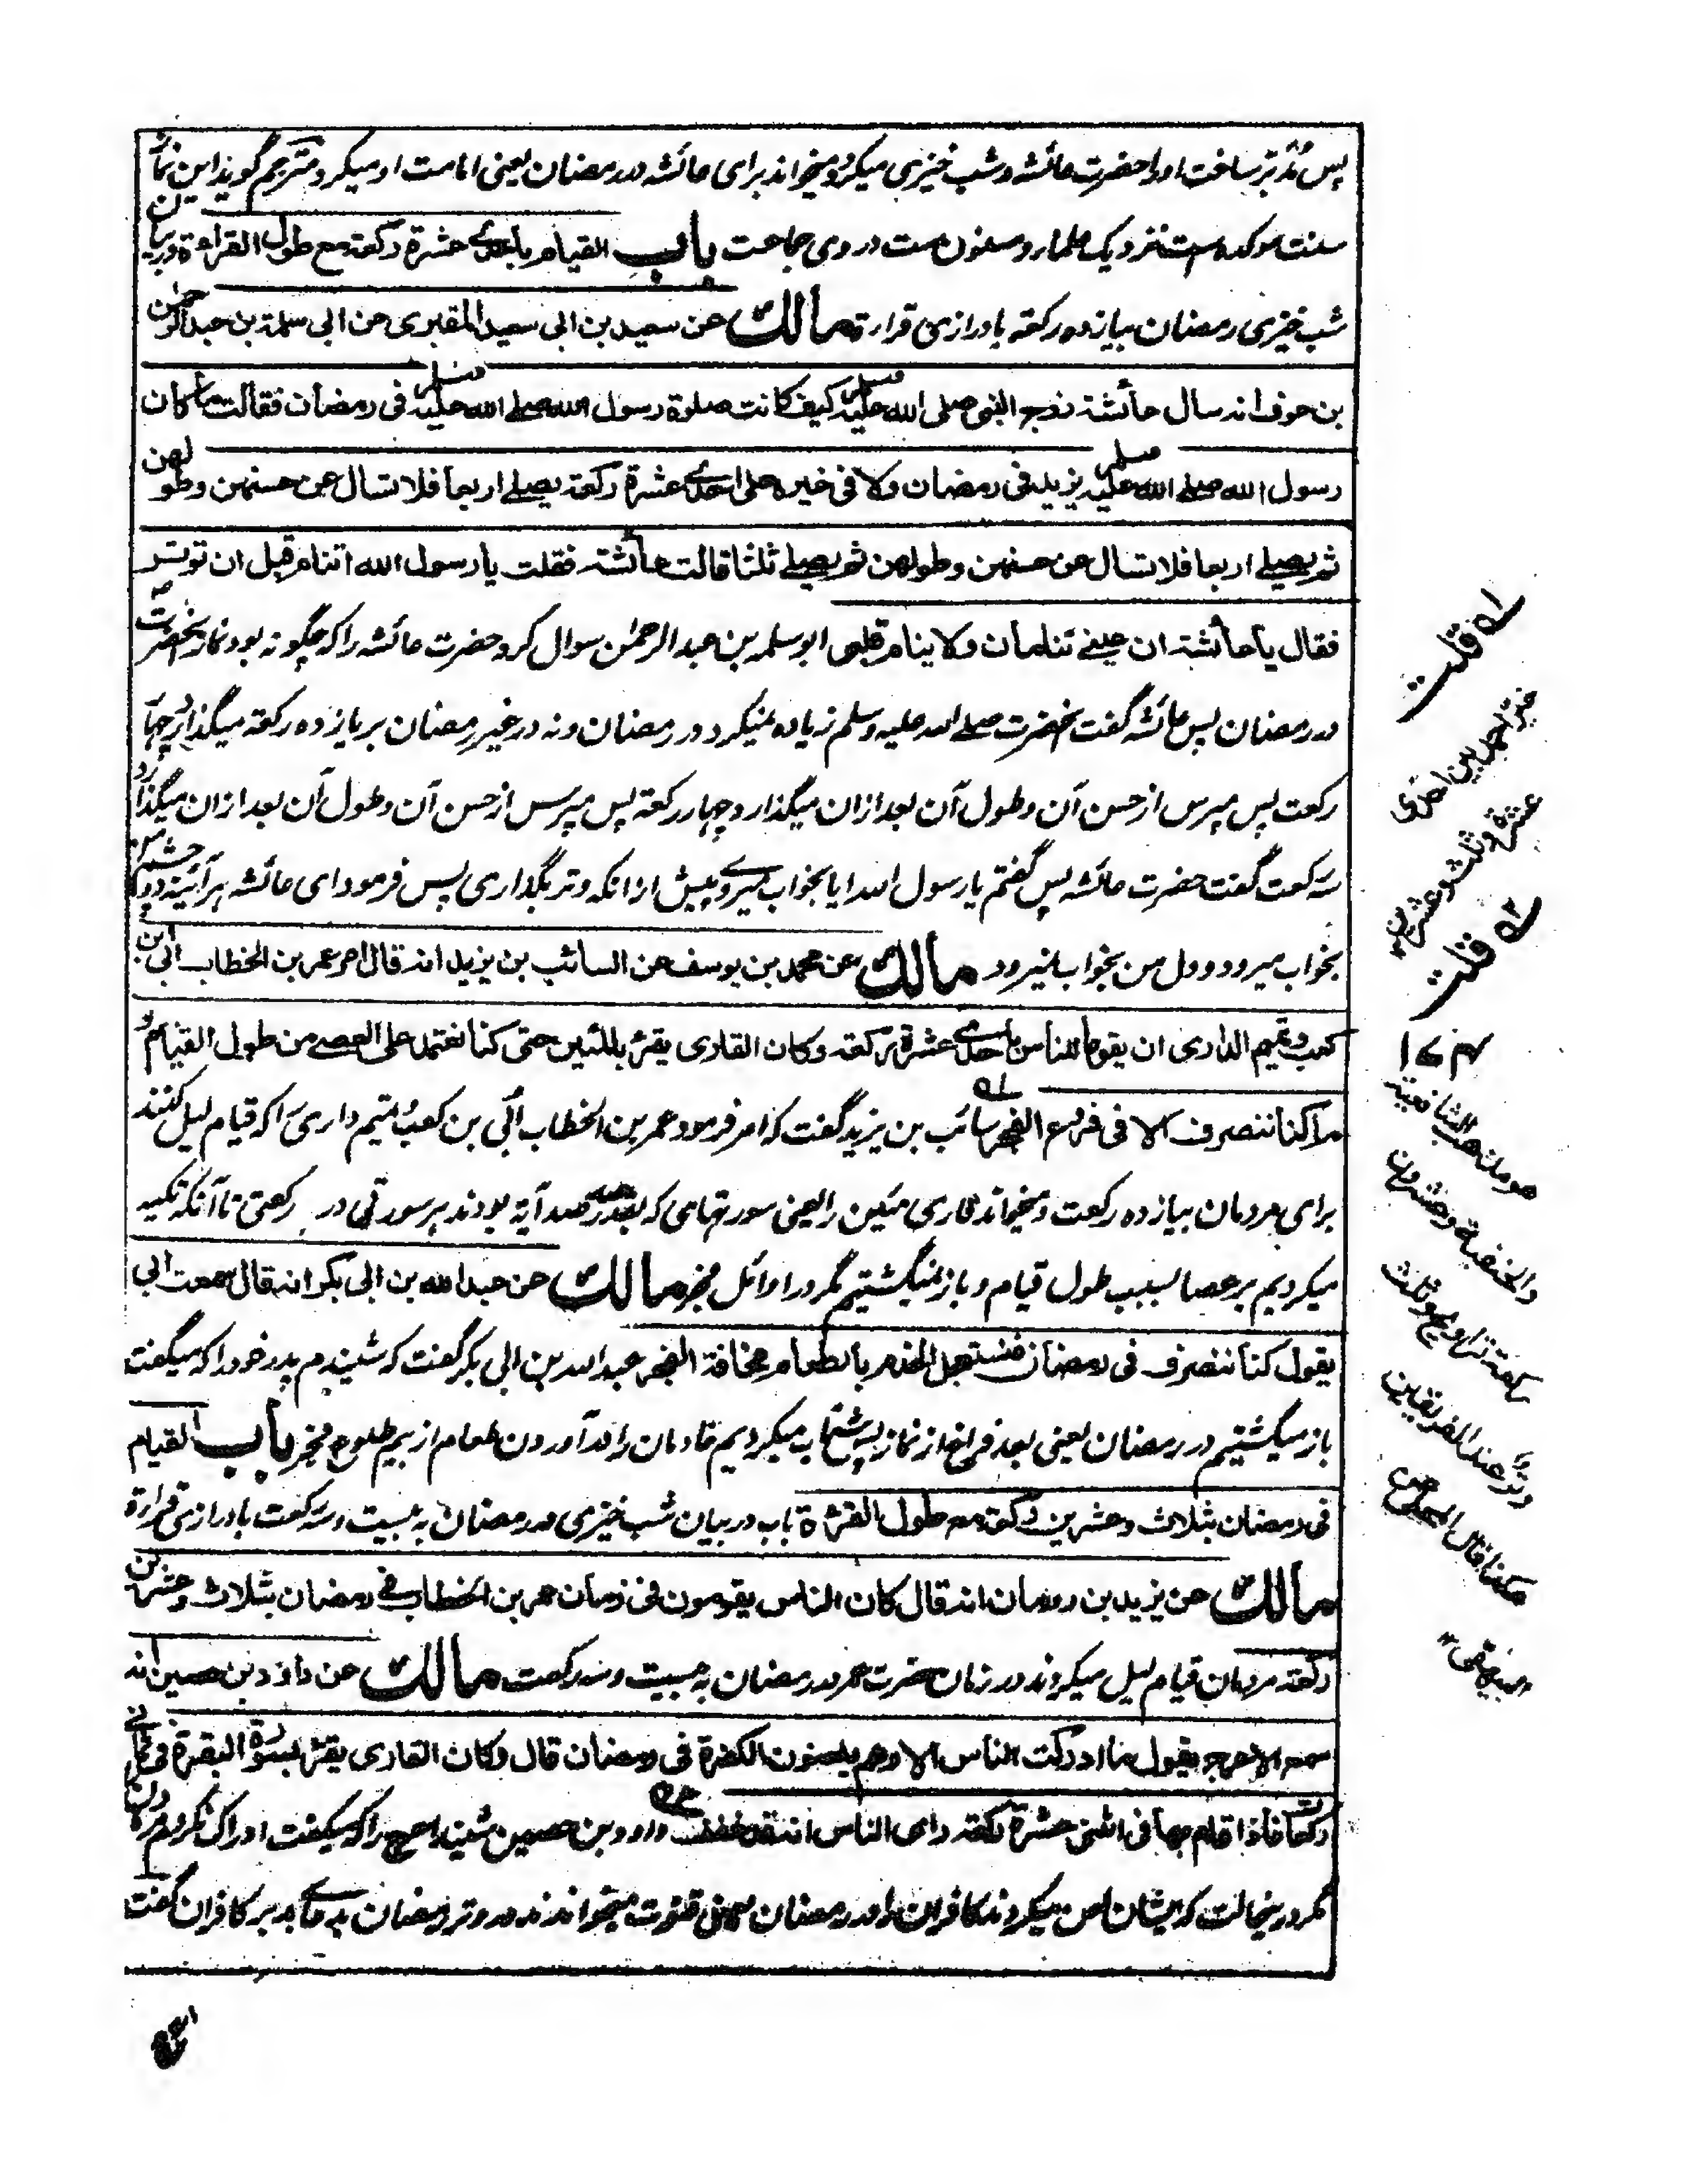 پس مدبر ساخت او را حضرت عائشه و شب خیزی میکرد و میخواند برای عائشه در رمضان یعنی امامت او میکرد مترجم گوید این نماز
سنت موکده است نزدیک علما و مسنون ست در وی جماعت باب القیام باحدی عشرة رکعة مع طول القراءة در بیان
شب خیزی رمضان بیازده رکعة با درازی قراءة مالك عن سعید بن ابی سعید المقبری عن ابی سلمة بن عبد الرحمن
بن عوف انه سال عائشة زوج النبی صلی الله علیه وسلم کیف کانت صلوة رسول الله صلے الله علیه وسلم فی رمضان فقالت ما کان
رسول الله صلے الله علیه وسلم یزید فی رمضان ولا فی غیره علی احدے عشرة رکعة یصلے اربعا فلا تسال عن حسنهن وطولهن
ثم یصلے اربعا فلا تسال عن حسنهن وطولهن ثم یصلے ثلثا قالت عائشة فقلت یا رسول الله اتنام قبل ان توتر
فقال یا عائشة ان عینے تنامان ولا ینام قلبی ابو سلمه بن عبد الرحمن سوال کرد حضرت عائشه را که چگونه بود نماز آنحضرت
در رمضان پس عائشه گفت آنحضرت صلے الله علیه وسلم زیاده نمیکرد در رمضان و نه در غیر رمضان بر یازده رکعة میگذارد چهار
رکعت پس مپرس از حسن آن و طول آن بعد ازان میگذارد چهار رکعة پس مپرس از حسن آن و طول آن بعد ازان میگذارد
سه رکعت گفت حضرت عائشه پس گفتم یا رسول الله ایا بخواب میروے پیش ازانکه وتر بگذاری پس فرمود ای عائشه هر آئینه دو چشم من
بخواب میرود و دل من بخواب نمیرود مالك عن محمد بن یوسف عن السائب بن یزید انه قال امر عمر بن الخطاب ابی بن
کعب وتمیم الداری ان یقوما للناس باحدے عشرة رکعة وکان القاری یقرأ بالمئین حتی کنا نعتمد علی العصے من طول القیام و
ما کنا ننصرف الا فی فروع الفجر سائب بن یزید گفت که امر فرمود عمر بن الخطاب ابی بن کعب و تمیم داری را که قیام لیل کنند
برای مردمان بیازده رکعت و میخواند قاری مئین را یعنی سورتهای که بقدر صد آیه بودند هر سورتی در رکعتی تا آنکه تکیه
میکردیم بر عصا بسبب طول قیام و باز نمیگشتیم مگر در اوائل فجر مالك عن عبد الله بن ابی بکر انه قال سمعت ابی
یقول کنا ننصرف فی رمضان فنستعجل الخدم بالطعام مخافة الفجر عبد الله بن ابی بکر گفت که شنیدم پدر خود را که میگفت
باز میگشتیم در رمضان یعنی بعد فراغ از نماز پس شتاب میکردیم خادمان را در آوردن طعام از بیم طلوع فجر باب القیام
فی رمضان بثلاث وعشرین رکعة مع طول القراءة باب در بیان شب خیزی در رمضان به بیست و سه رکعت با درازی قراءة
مالك عن یزید بن رومان انه قال کان الناس یقومون فی زمان عمر بن الخطاب فی رمضان بثلاث وعشرین
رکعة مردمان قیام لیل میکردند در زمان حضرت عمر در رمضان به بیست و سه رکعت مالك عن داؤد بن حصین انه
سمع الاعرج یقول ما ادرکت الناس الا وهم یلعنون الکفرة فی رمضان قال وکان القاری یقرأ بسورة البقرة فی ثمانی
رکعات فاذا قام بها فی اثنی عشرة رکعة رای الناس انه قد خفف داود بن حصین شنید اعرج را که میگفت ادراک نکردم مردمان را
مگر در ینحالت که ایشان لعن میکردند کافران را در رمضان یعنی قنوت میخواندند در وتر رمضان بدعاء بد بر کافران گفت
له قلت
خیر احمد بین احدی
عشرة وثلث وعشرین
قلت
هو مذهب الشافعیة
والحنفیة وعشرون
رکعة تراویح وثلث
وتر عند الفریقین
هکذا قال المحلی عن
البیهقی